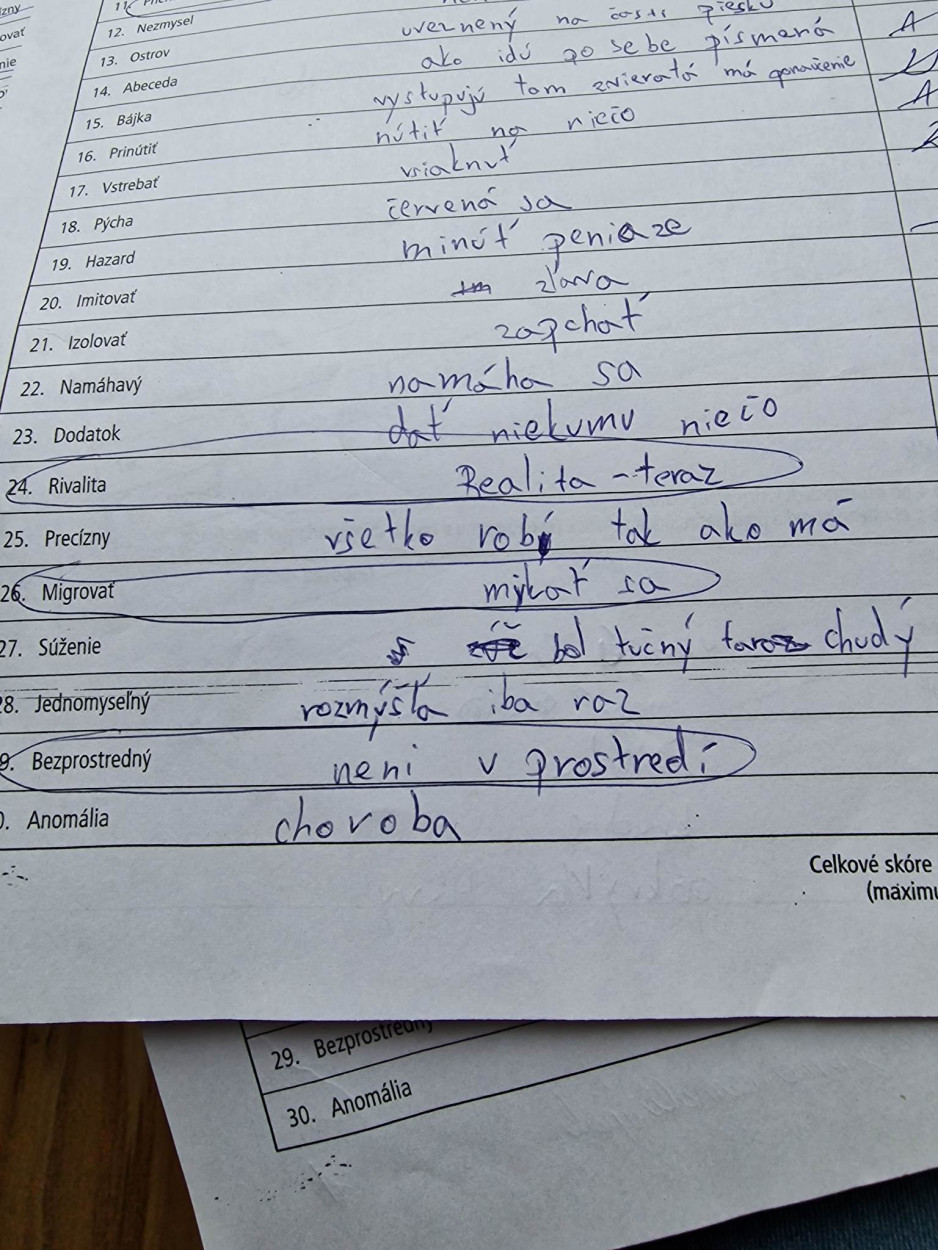 zny
ovať
nie
11.
12. Nezmysel
13. Ostrov uveznený na časti piesku
14. Abeceda ako idú po sebe písmená A
15. Bájka vystupujú tom zvieratá má ponaučenie
16. Prinútiť nútiť na niečo A
17. Vstrebať vsiaknuť
18. Pýcha červená sa
19. Hazard minúť peniaze
20. Imitovať zľava
21. Izolovať zapchať
22. Namáhavý namáha sa
23. Dodatok dať niekumu niečo
24. Rivalita Realita - teraz
25. Precízny všetko robí tak ako má
26. Migrovať mýkať sa
27. Súženie bol tučný taraz chudý
28. Jednomyseľný rozmýšľa iba raz
9. Bezprostredný neni v prostredí
0. Anomália choroba
Celkové skóre
(maximu
29. Bezprostredný
30. Anomália